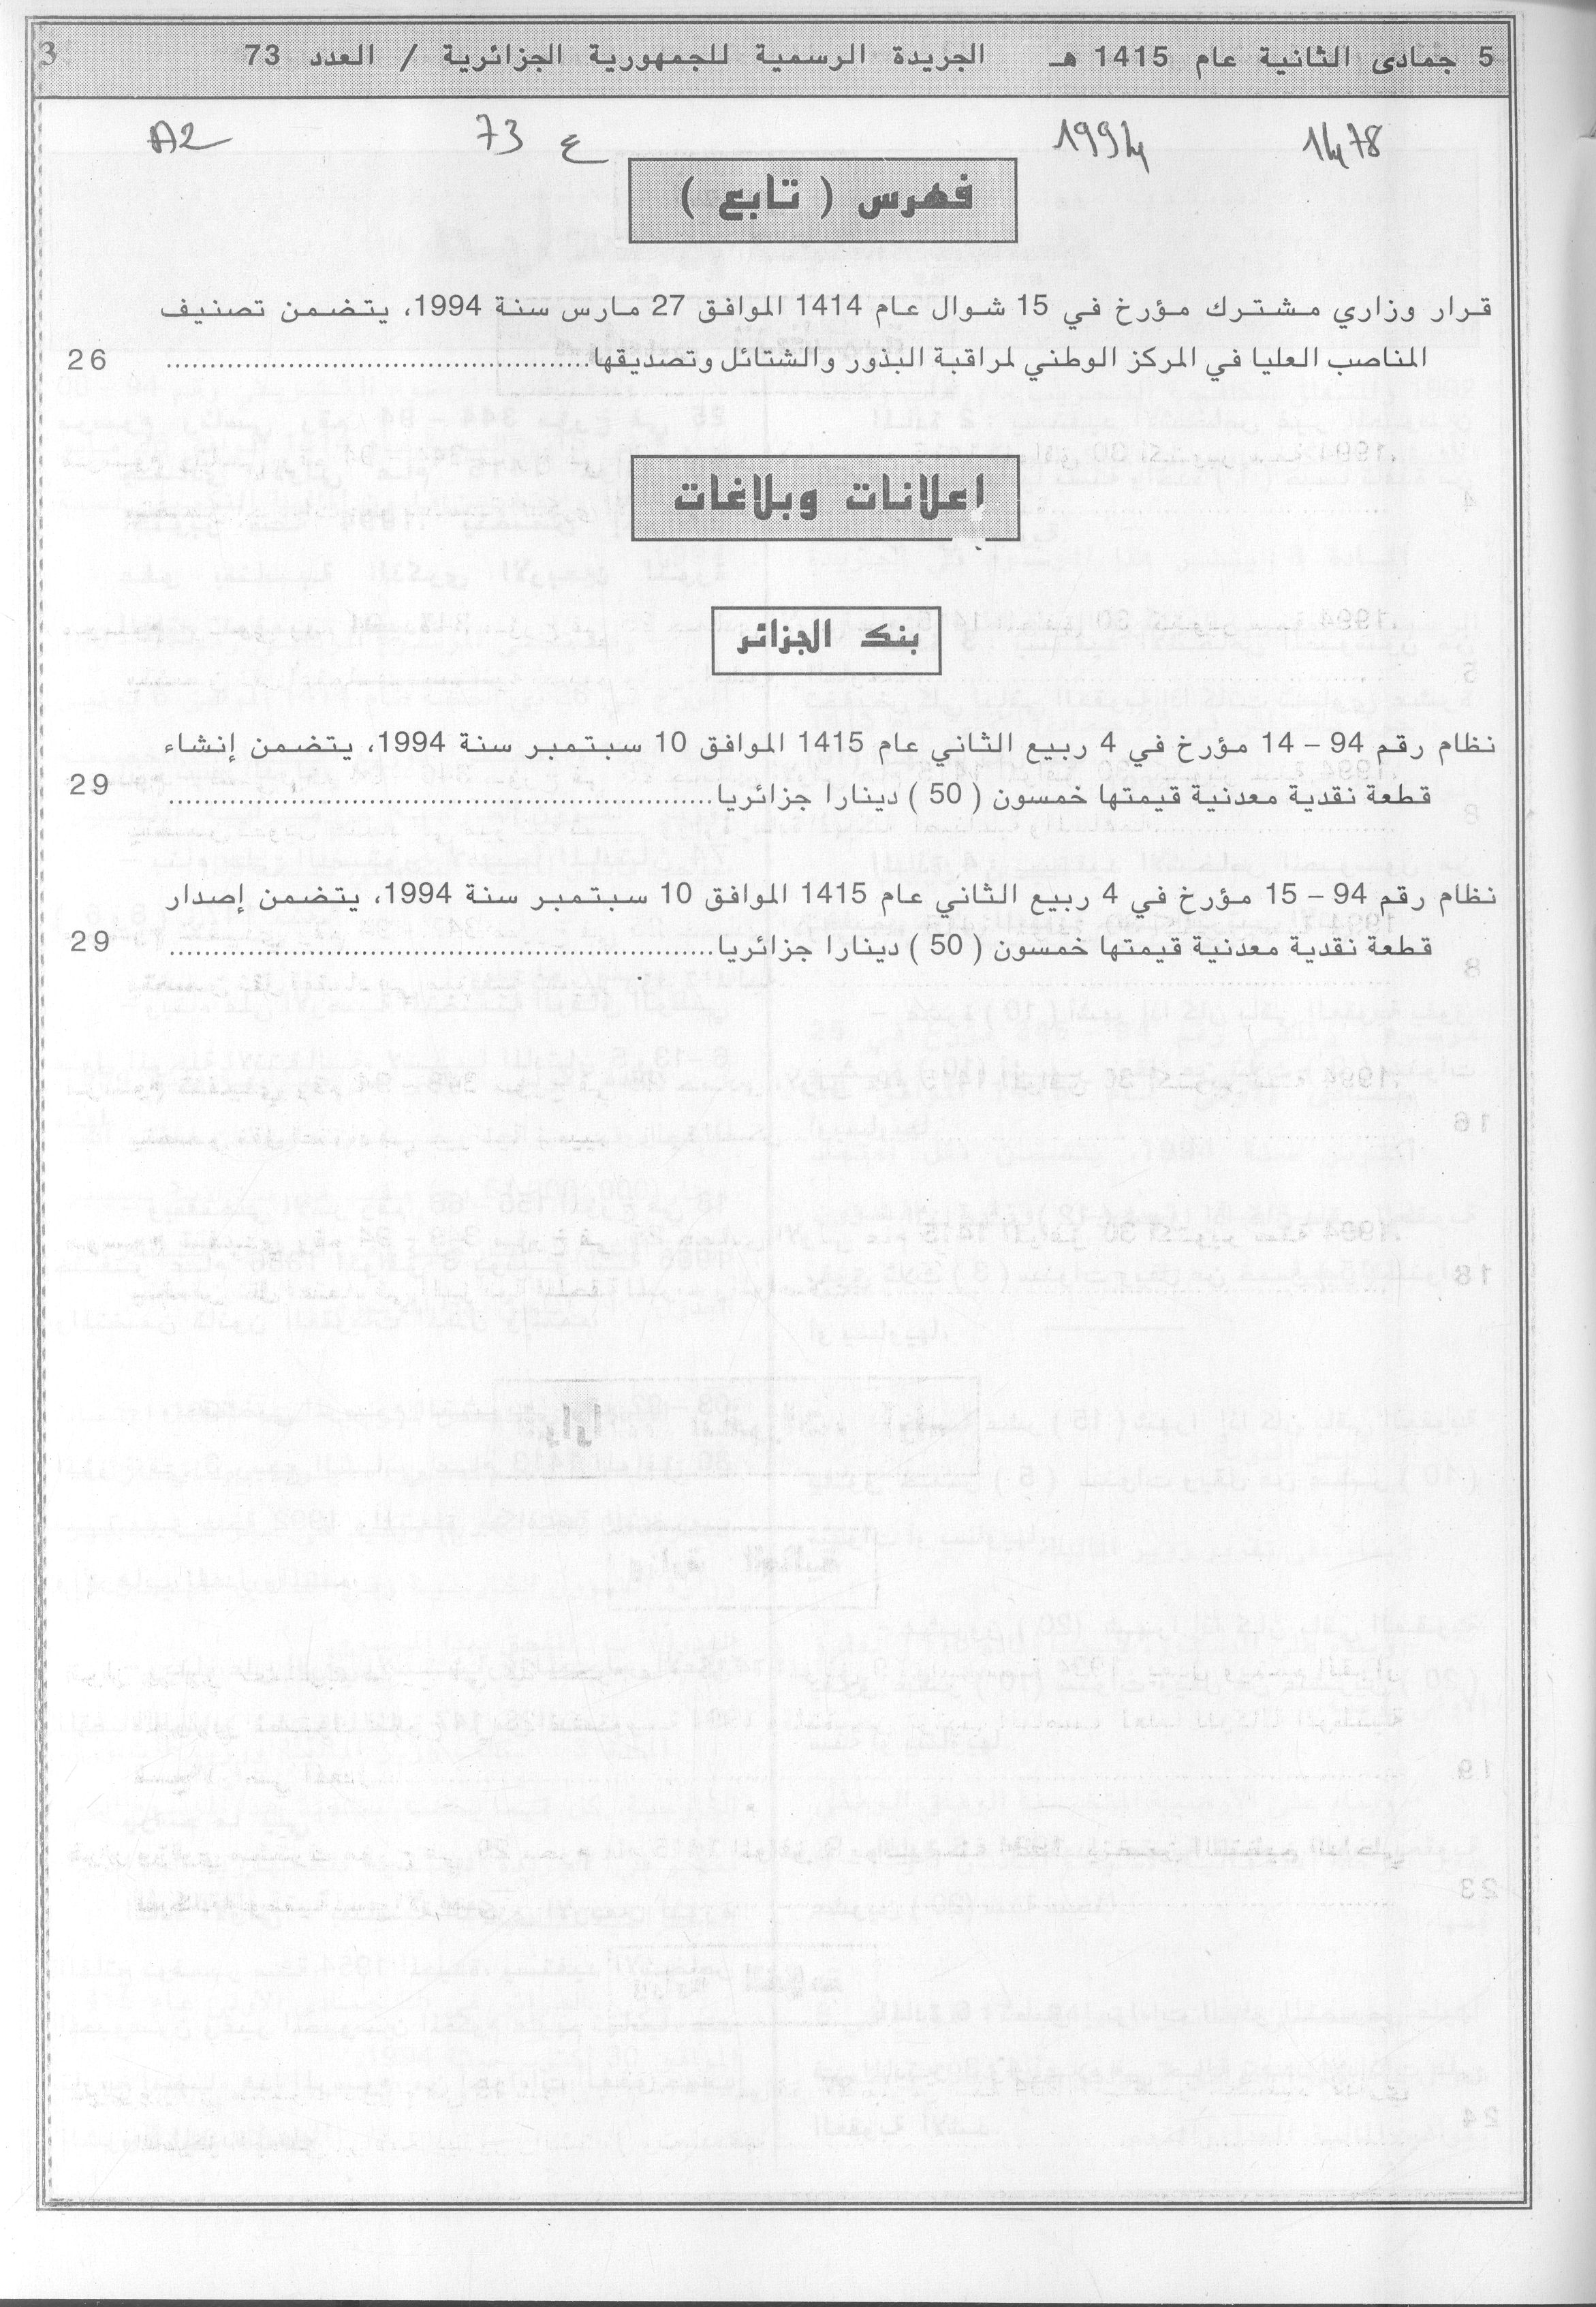 5 جمادى الثانية عام 1415 هـ الجريدة الرسمية للجمهورية الجزائرية / العدد 73 3
1478 1994 ع 73 A2
فهرس ( تابع )
قرار وزاري مشترك مؤرخ في 15 شوال عام 1414 الموافق 27 مارس سنة 1994، يتضمن تصنيف
المناصب العليا في المركز الوطني لمراقبة البذور والشتائل وتصديقها.................................................. 26
إعلانات وبلاغات
بنك الجزائر
نظام رقم 94 – 14 مؤرخ في 4 ربيع الثاني عام 1415 الموافق 10 سبتمبر سنة 1994، يتضمن إنشاء
قطعة نقدية معدنية قيمتها خمسون ( 50 ) دينارا جزائريا.............................................................. 29
نظام رقم 94 – 15 مؤرخ في 4 ربيع الثاني عام 1415 الموافق 10 سبتمبر سنة 1994، يتضمن إصدار
قطعة نقدية معدنية قيمتها خمسون ( 50 ) دينارا جزائريا.............................................................. 29